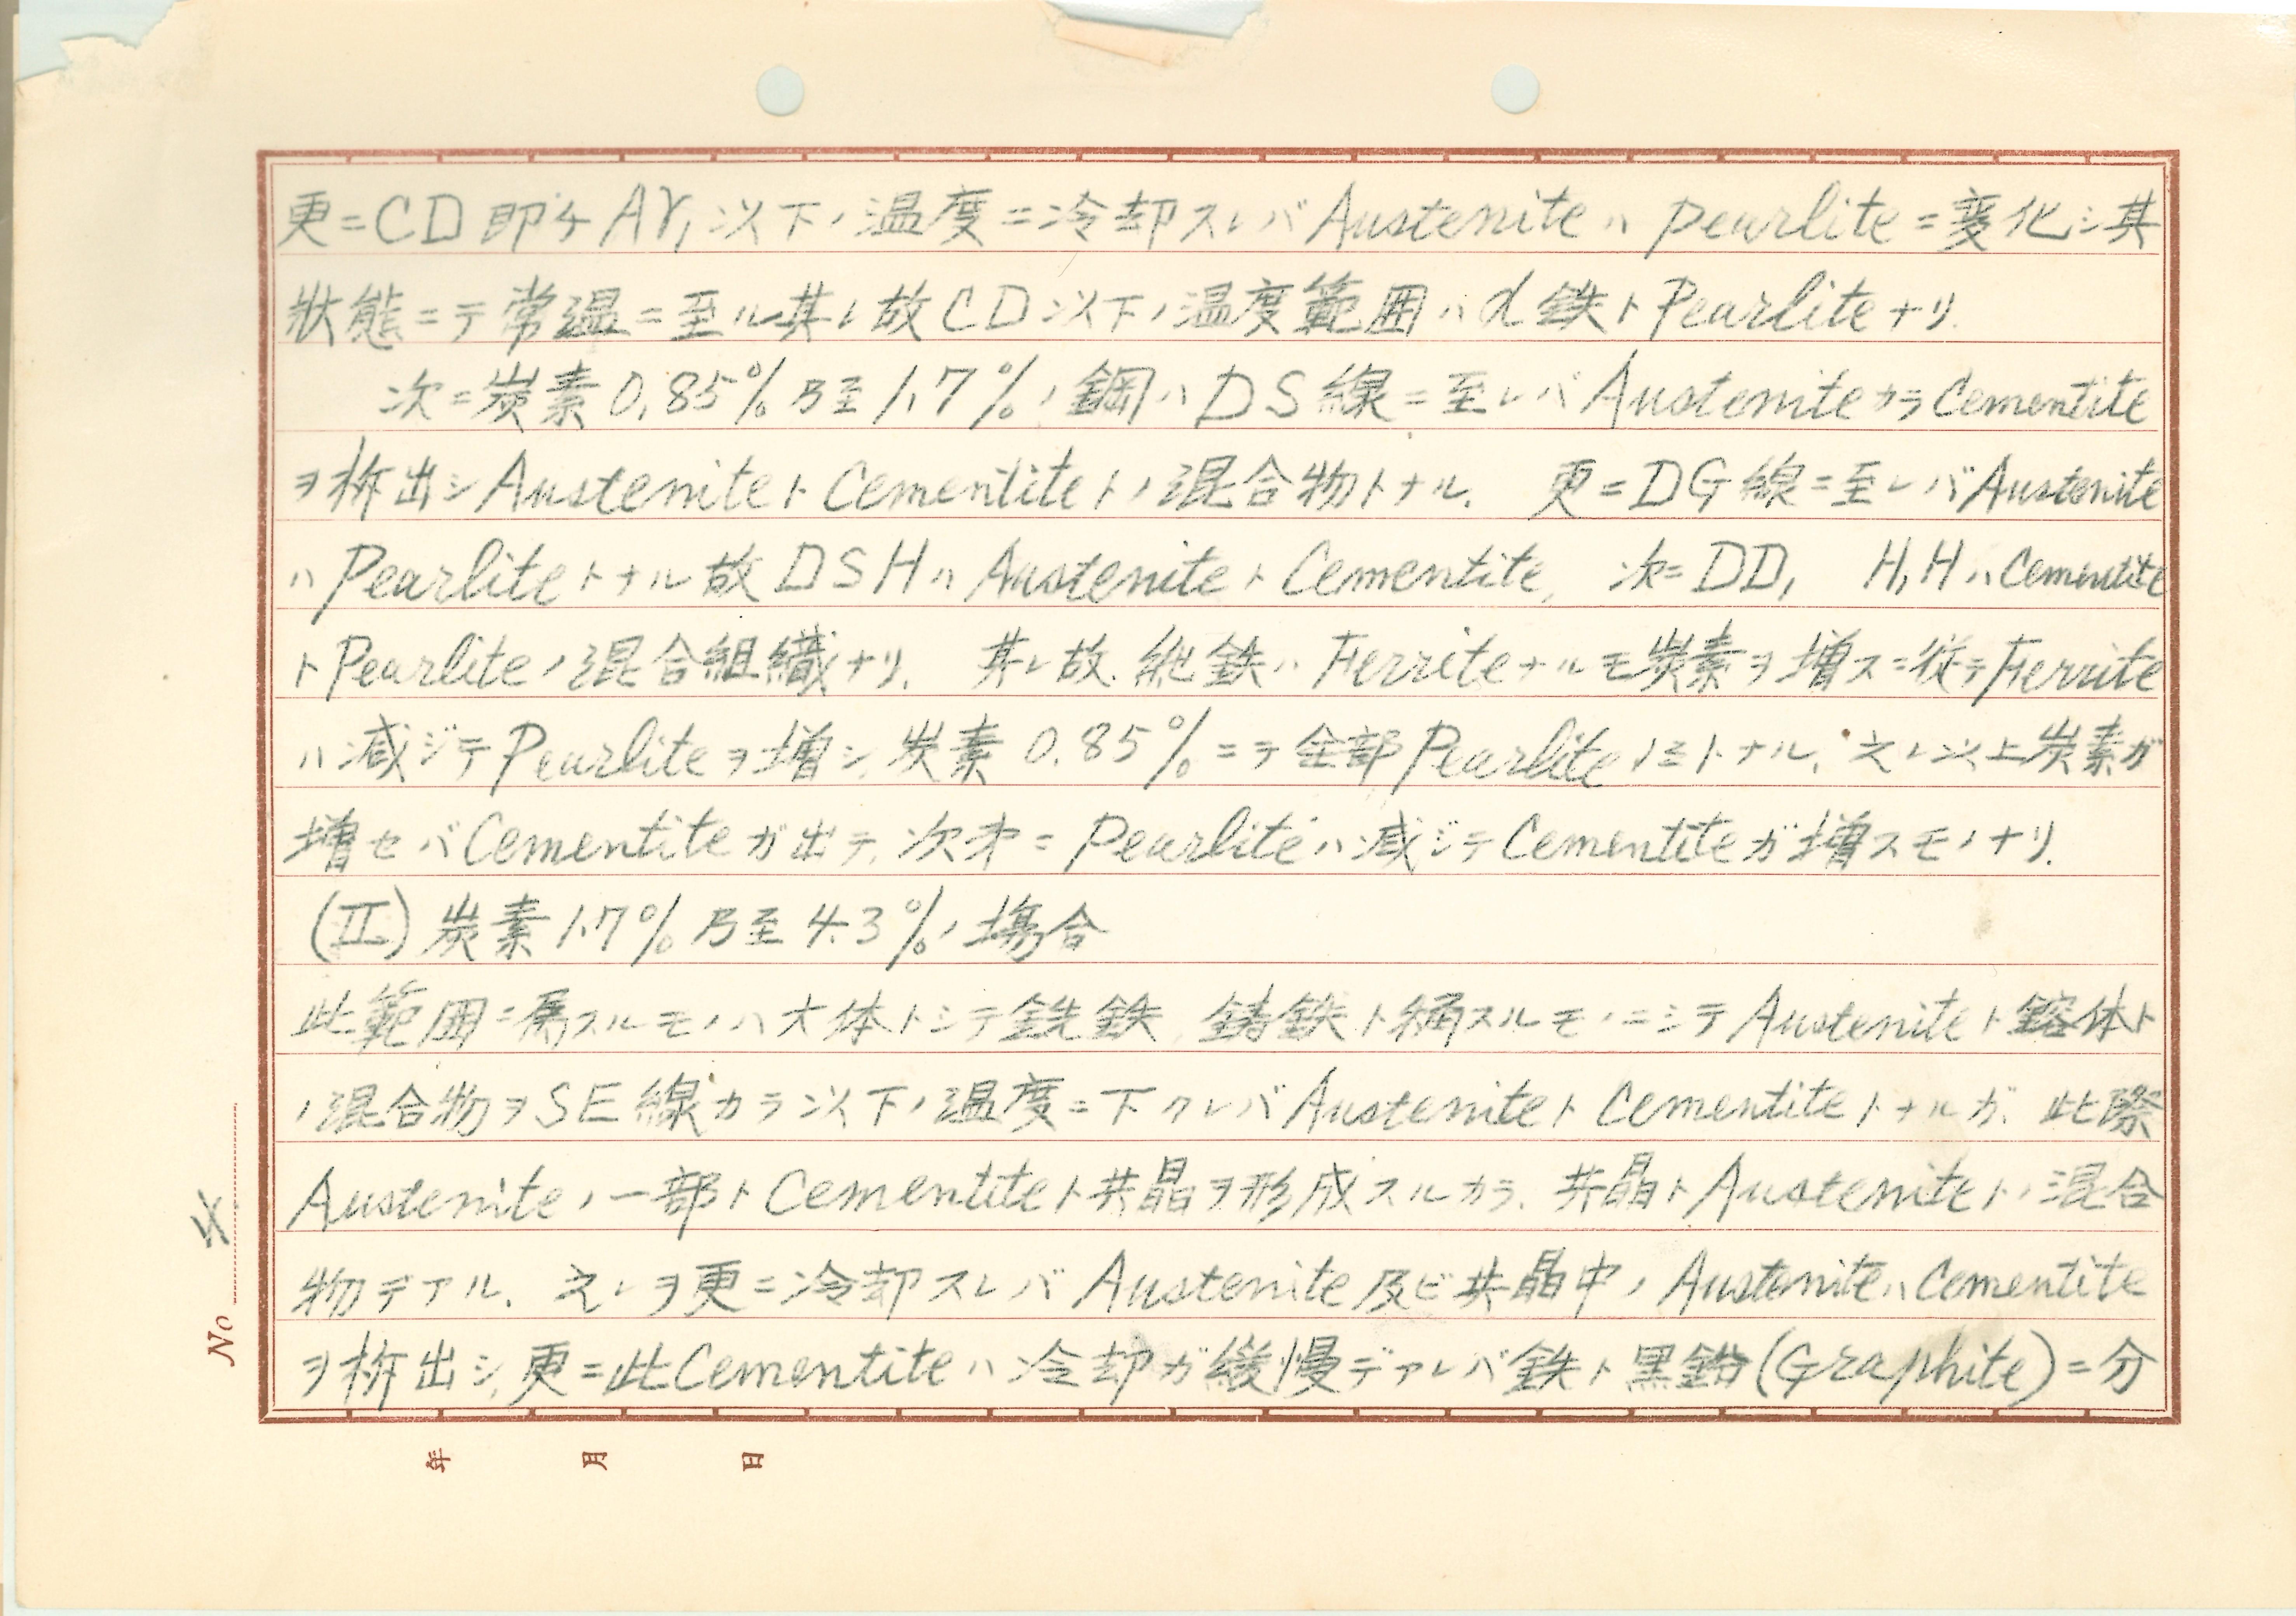 更ニCD即チAr₁以下ノ温度ニ冷却スレバAusteniteハPearliteニ変化シ其
狀態ニテ常温ニ至ル其レ故CD以下ノ温度範囲ハα鉄トPearliteナリ.
次ニ炭素0.85%乃至1.7%ノ鋼ハDS線ニ至レバAusteniteカラCementite
ヲ析出シAusteniteトCementiteトノ混合物トナル. 更ニDG線ニ至レバAustenite
ハPearliteトナル故DSHハAusteniteトCementite, 次ニDD₁ H₁HハCementite
トPearliteノ混合組織ナリ. 其レ故. 純鉄ハFerriteナルモ炭素ヲ増スニ従テFerrite
ハ減ジテPearliteヲ増シ, 炭素0.85%ニテ全部Pearliteノミトナル. 之レ以上炭素ガ
増セバCementiteガ出テ, 次才ニPearliteハ減ジテCementiteガ増スモノナリ.
(II) 炭素1.7%乃至4.3%ノ場合
此範囲ニ属スルモノハ大体トシテ銑鉄, 鋳鉄ト稱スルモノニシテAusteniteト鎔体ト
ノ混合物ヲSE線カラ以下ノ温度ニ下クレバAusteniteトCementiteトナルガ. 此際
Austeniteノ一部トCementiteト共晶ヲ形成スルカラ. 共晶トAusteniteトノ混合
物デアル. 之レヲ更ニ冷却スレバAustenite及ビ共晶中ノAusteniteハCementite
ヲ析出シ, 更ニ此Cementiteハ冷却ガ緩慢デアレバ鉄ト黒鉛(Graphite)ニ分
No 4.
年 月 日